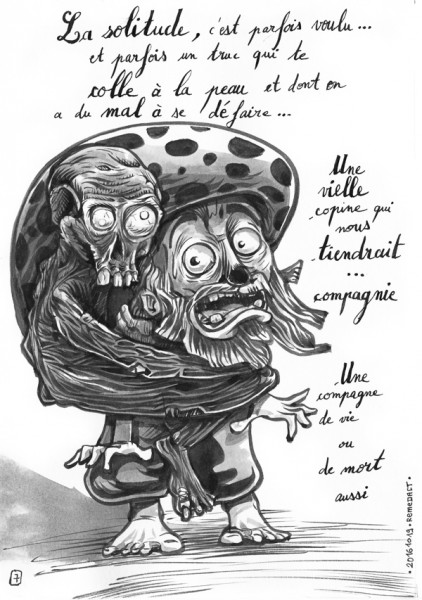 La solitude, c'est parfois voulu...
et parfois un truc qui te
colle à la peau et dont on
a du mal à se défaire...
Une
vielle
copine qui
nous
tiendrait
...
compagnie
Une
compagne
de vie
ou
de mort
aussi
• 20161019 • REMEDACT •
7